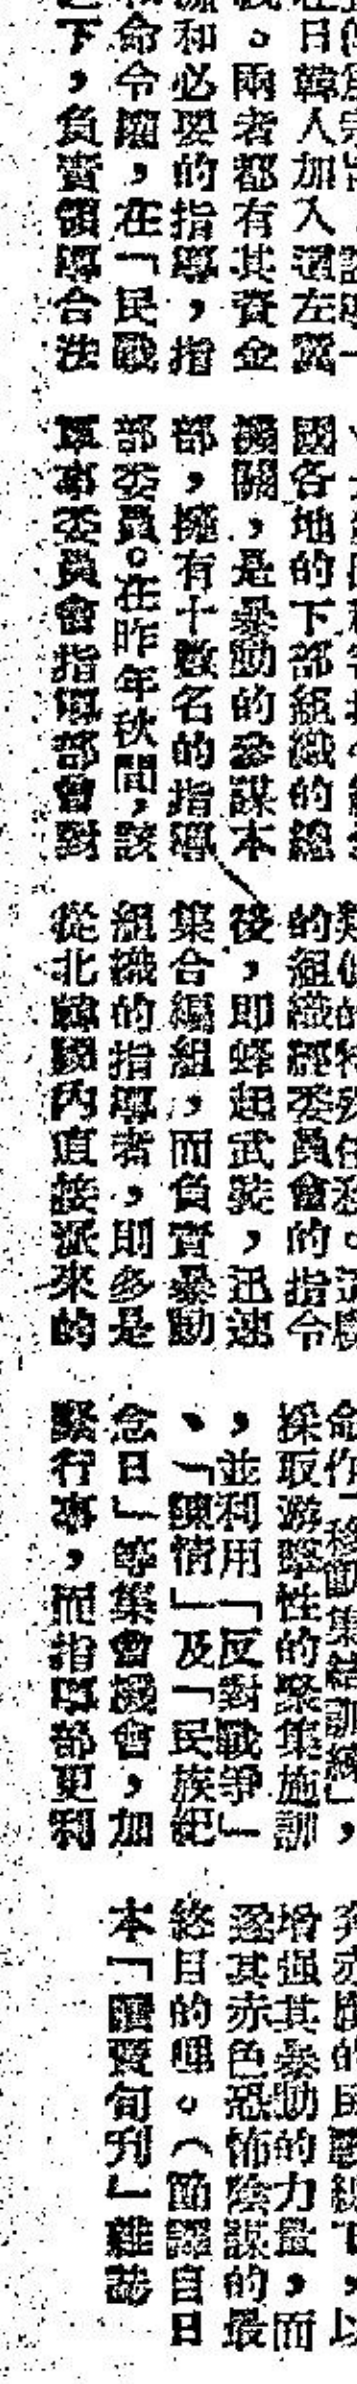 日韓人加入還左翼
。兩者都有其資金
和必要的指導，指
命令權，在「民戰
下，負責領導合法
國各地的下部組織的總
機關，是暴動的參謀本
部，擁有十數名的指導
部委員。在昨年秋間，該
軍事委員會指導部曾對
的組織經委員會的指令
後，即蜂起武裝，迅速
集合編組，而負責暴動
組織的指導者，則多是
從北韓國內直接派來的
命作「移動集結訓練」，
採取游擊性的聚集施訓
，並利用「反對戰爭」
、「陳情」及「民族紀
念日」等集會機會，加
緊行事，而指導部更利
赤魔的民戰線下，以
增强其暴動的力量，而
遂其赤色恐怖陰謀的最
終目的哩。（節譯自日
本「旬刊」雜誌